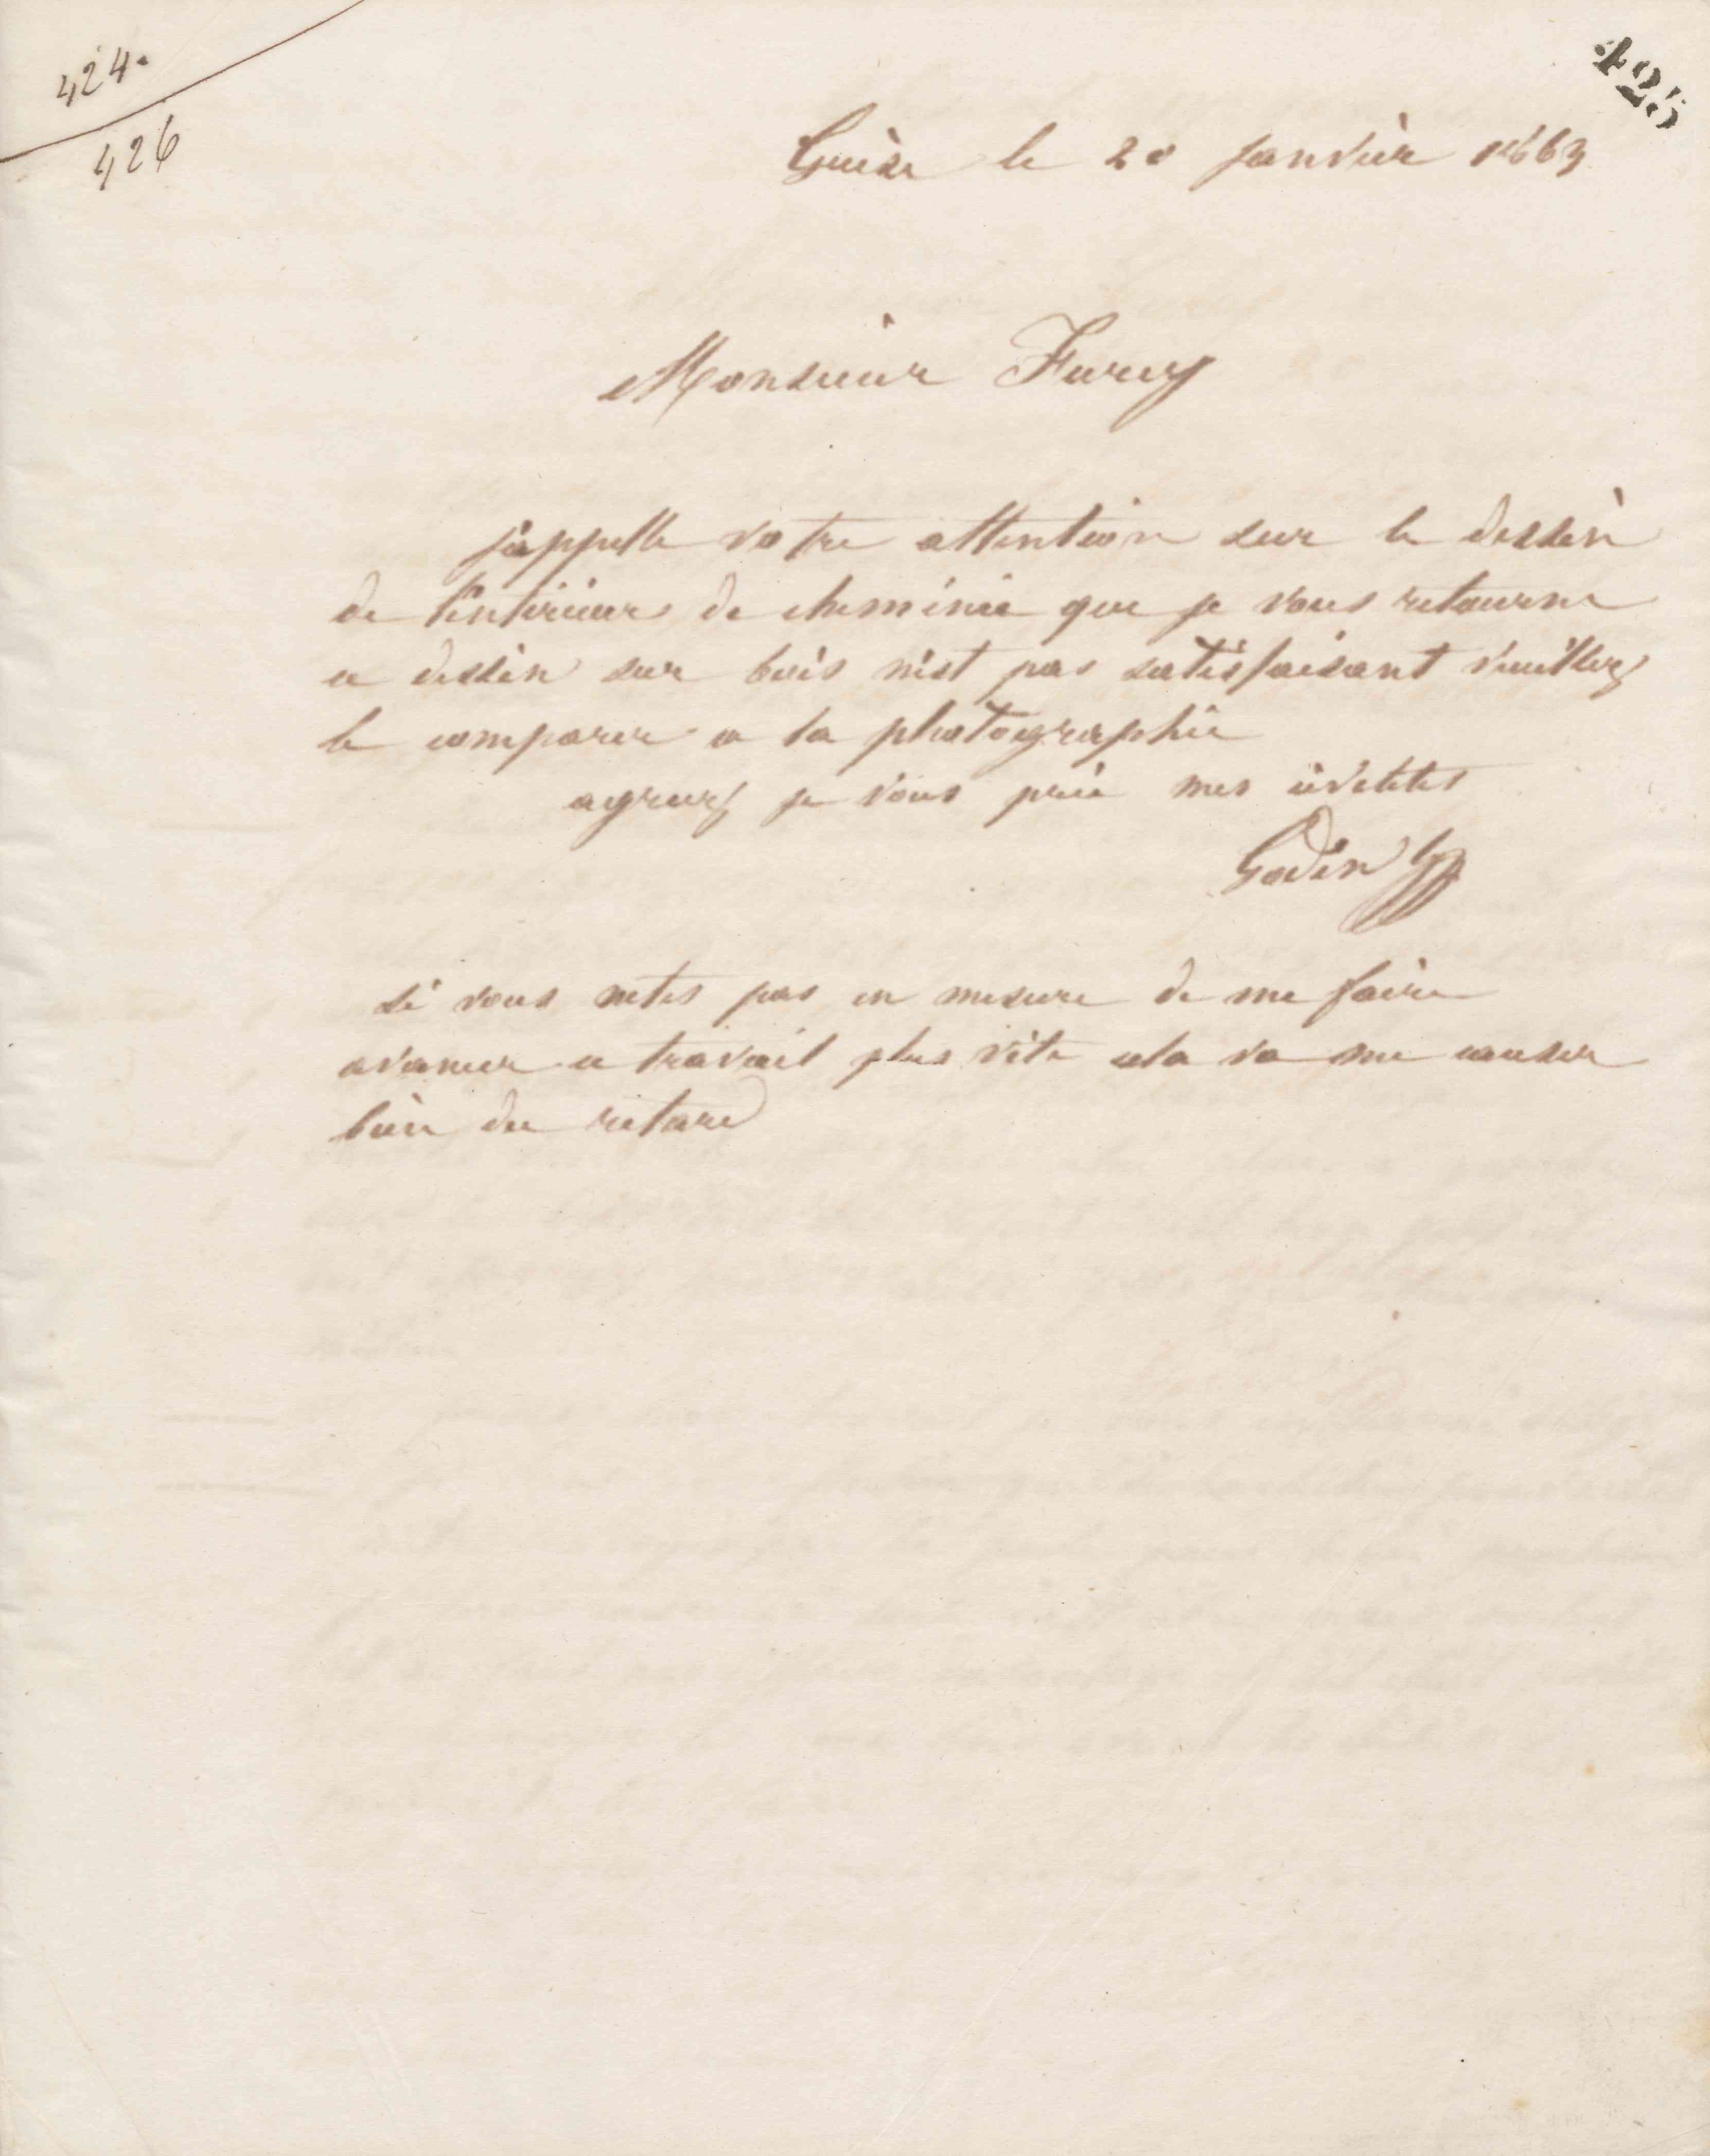 424.
426
425
Guise le 20 janvier 1863
Monsieur Furcy
j'appelle votre attention sur le dessin
de l'intérieur de cheminée que je vous retourne
ce dessin sur bois n'est pas satisfaisant veuillez
le comparer a la photographie
agreez je vous prie mes civilités
Godin
si vous netes pas en mesure de me faire
avancer ce travail plus vite cela va me causer
bien du retard